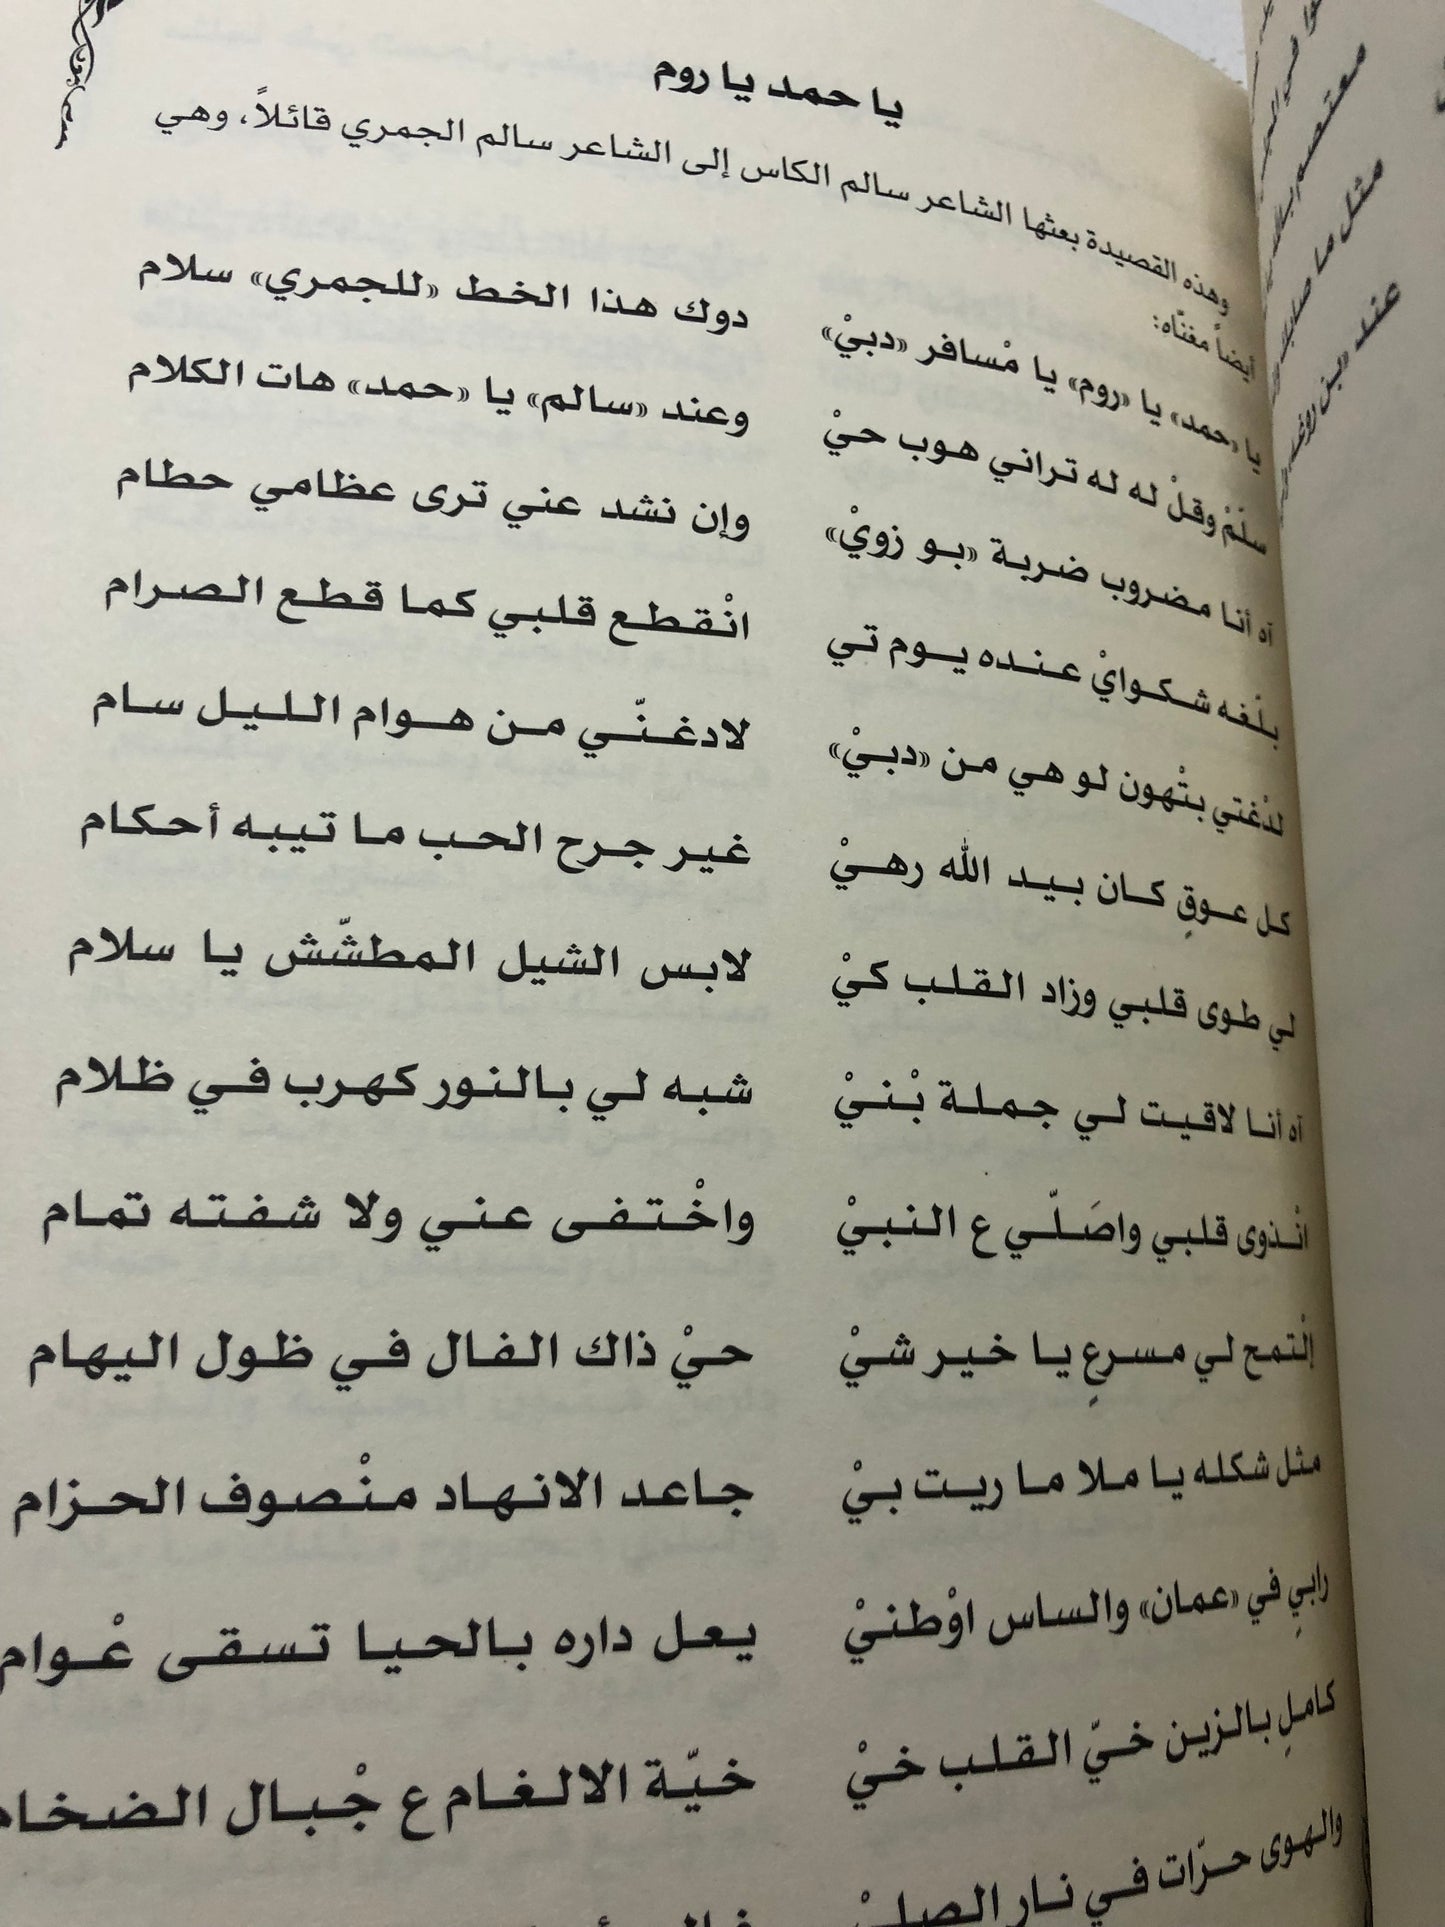 يا حمد يا روم
وهذه القصيدة بعثها الشاعر سالم الكاس إلى الشاعر سالم الجمري قائلاً، وهي
أيضاً مغنّاه:
يا «حمد» يا «روم» يا مْسافر «دبيْ» دوك هذا الخط «للجمري» سلام
سلّمْ وقلْ له له تراني هوب حيْ وعند «سالم» يا «حمد» هات الكلام
آه أنا مضروب ضربة «بو زويْ» وإن نشد عني ترى عظامي حطام
بلّغه شكوايْ عنده يوم تي انْقطع قلبي كما قطع الصرام
لدْغتي بتْهون لو هي من «دبيْ» لادغنّي من هوام الليل سام
كل عوقٍ كان بيد الله رهيْ غير جرح الحب ما تيبه أحكام
لي طوى قلبي وزاد القلب كيْ لابس الشيل المطشّش يا سلام
آه أنا لاقيت لي جملة بْنيْ شبه لي بالنور كهرب في ظلام
انْذوى قلبي واصَلّي ع النبيْ واخْتفى عني ولا شفته تمام
إلْتمح لي مسرعٍ يا خير شيْ حيْ ذاك الفال في ظول اليهام
مثل شكله يا ملا ما ريت بيْ جاعد الانهاد منْصوف الحزام
رابيٍ في «عمان» والساس اوْطنيْ يعل داره بالحيا تسقى عْوام
كاملٍ بالزين خيّ القلب خيْ خيّة الالغام ع جْبال الضخام
والهوى حرّات في نار الصليْ
معتصم
مثل ما
عند «بن